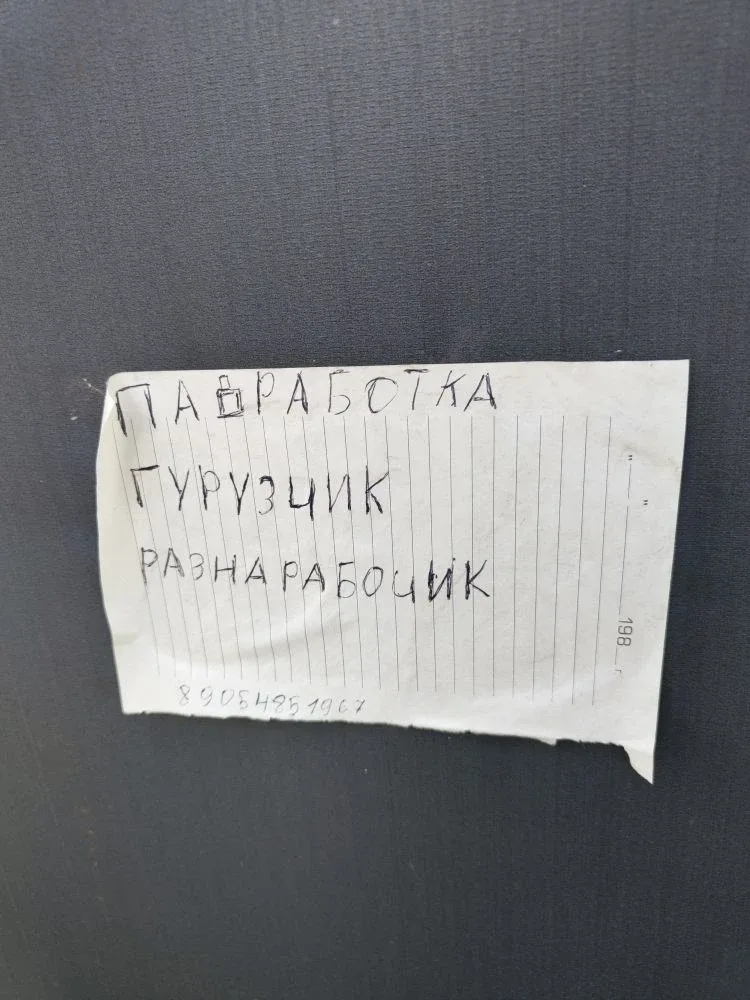 ПАДРАБОТКА
ГУРУЗЧИК
РАЗНАРАБОЧИК
89054851967
"__" 198__г